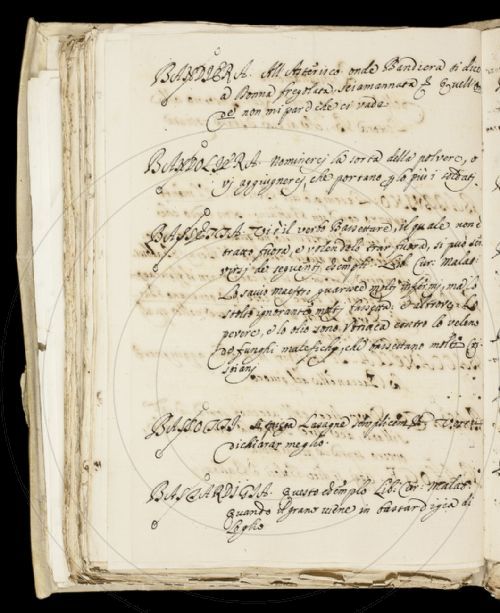 BANDIERA. All'Asterisco onde Bandiera si dice
a Donna sregolata, sciamannata &
non mi par che ci vada.
BANDOLIERA. Nominerei la sorta della polvere, o
vi aggiugnerei, che portano i soldati
BASSETTA. Vi è il verbo Bassettare, il quale non è
tratto fuora, e volendolo trar fuora, si può ser
virsi de seguenti esempli. Lib. Cur. Malat.
Lo savio maestro guarisce molti infermi, ma lo
stolto ignorante molti bassetta. e altrove: Lo
pevere, e lo olio sono utriaca contro lo veleno
de funghi malefichi, che bassettano molti Cri
stiani
BASTOTTI. Lasagne semplicem.te
dichiarar meglio.
BASTARDIGIA. Questo esemplo Lib. Cur. Malat.
Quando il grano viene in bastardigia di
loglio